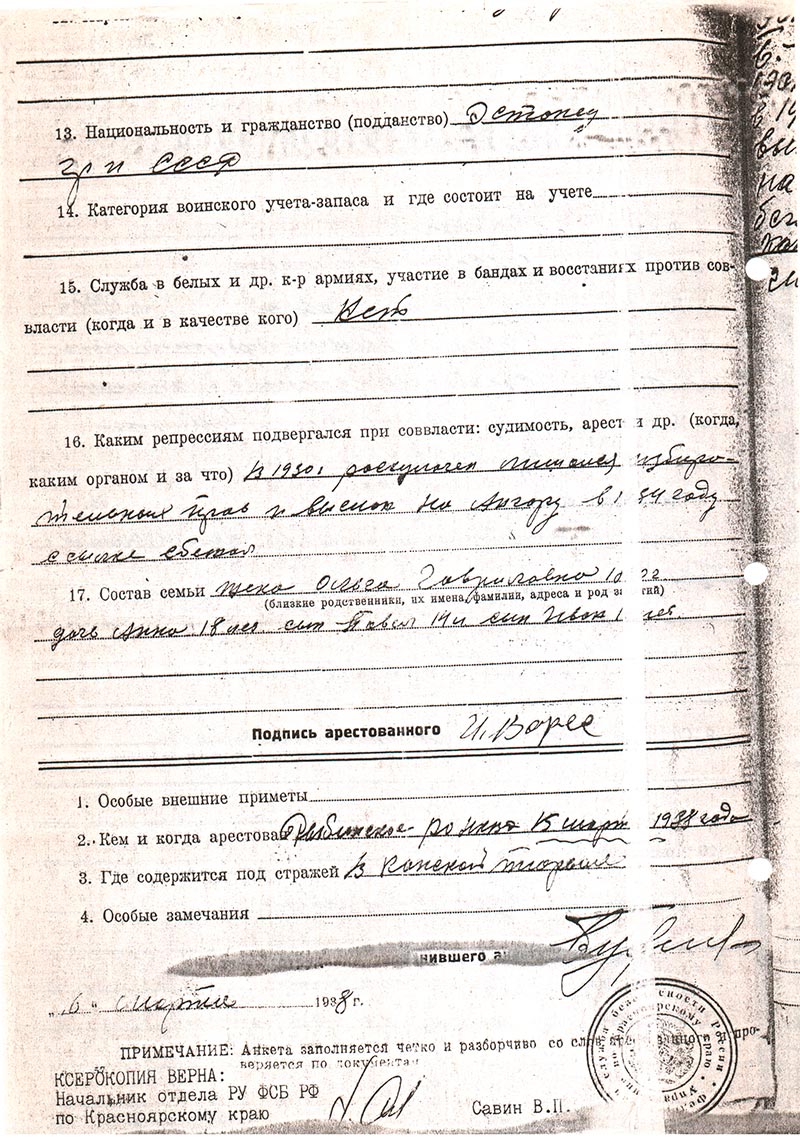 13. Национальность и гражданство (подданство) Эстонец
гр н СССР
14. Категория воинского учета-запаса и где состоит на учете
15. Служба в белых и др. к-р армиях, участие в бандах и восстаниях против сов-
власти (когда и в качестве кого) Нет
16. Каким репрессиям подвергался при соввласти: судимость, арест и др. (когда,
каким органом и за что) В 1930г роскулочен лишался избиро-
тельных прав и выслон на Ангору в 34 году
с сылке сбежал
17. Состав семьи жена Ольга Гавриловна
(близкие родственники, их имена, фамилии, адреса и род занятий)
дочь Анна 18 лет. сын Павел 14 л сын Иван
Подпись арестованного И. Варес
1. Особые внешние приметы
2. Кем и когда арестован Рыбинское ро нквд 15 марта 1938 года
3. Где содержится под стражей В Канской тюрьме
4. Особые замечания
нившего
„ 6 " марта 1938 г.
ПРИМЕЧАНИЕ: Анкета заполняется четко и разборчиво со слов арестованного и про-
веряется по документам
КСЕРОКОПИЯ ВЕРНА:
Начальник отдела РУ ФСБ РФ
по Красноярскому краю Савин В.П.